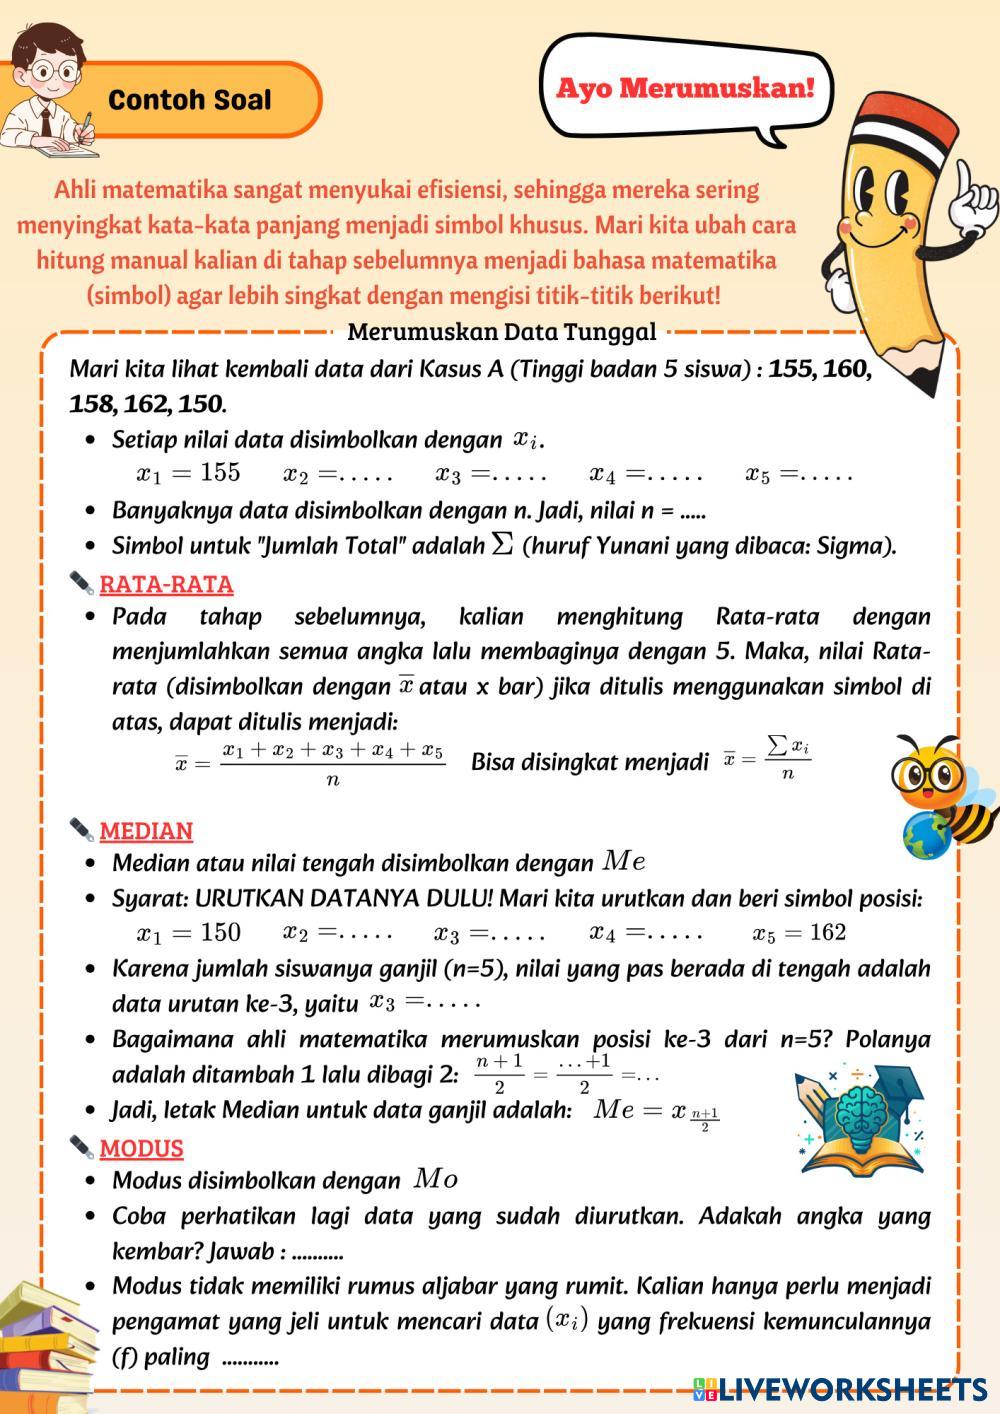 Contoh Soal
Ayo Merumuskan!
Ahli matematika sangat menyukai efisiensi, sehingga mereka sering
menyingkat kata-kata panjang menjadi simbol khusus. Mari kita ubah cara
hitung manual kalian di tahap sebelumnya menjadi bahasa matematika
(simbol) agar lebih singkat dengan mengisi titik-titik berikut!
Merumuskan Data Tunggal
Mari kita lihat kembali data dari Kasus A (Tinggi badan 5 siswa) : 155, 160,
158, 162, 150.
• Setiap nilai data disimbolkan dengan xᵢ.
x₁ = 155 x₂ =..... x₃ =..... x₄ =..... x₅ =.....
• Banyaknya data disimbolkan dengan n. Jadi, nilai n = .....
• Simbol untuk "Jumlah Total" adalah Σ (huruf Yunani yang dibaca: Sigma).
RATA-RATA
• Pada tahap sebelumnya, kalian menghitung Rata-rata dengan
menjumlahkan semua angka lalu membaginya dengan 5. Maka, nilai Rata-
rata (disimbolkan dengan x̅ atau x bar) jika ditulis menggunakan simbol di
atas, dapat ditulis menjadi:
x̅ = (x₁ + x₂ + x₃ + x₄ + x₅)/n Bisa disingkat menjadi x̅ = (∑xᵢ)/n
MEDIAN
• Median atau nilai tengah disimbolkan dengan Me
• Syarat: URUTKAN DATANYA DULU! Mari kita urutkan dan beri simbol posisi:
x₁ = 150 x₂ =..... x₃ =..... x₄ =..... x₅ = 162
• Karena jumlah siswanya ganjil (n=5), nilai yang pas berada di tengah adalah
data urutan ke-3, yaitu x₃ =.....
• Bagaimana ahli matematika merumuskan posisi ke-3 dari n=5? Polanya
adalah ditambah 1 lalu dibagi 2: (n+1)/2 = (...+1)/2 =...
• Jadi, letak Median untuk data ganjil adalah: Me = x_((n+1)/2)
MODUS
• Modus disimbolkan dengan Mo
• Coba perhatikan lagi data yang sudah diurutkan. Adakah angka yang
kembar? Jawab : ..........
• Modus tidak memiliki rumus aljabar yang rumit. Kalian hanya perlu menjadi
pengamat yang jeli untuk mencari data (xᵢ) yang frekuensi kemunculannya
(f) paling ...........
LIVE LIVEWORKSHEETS